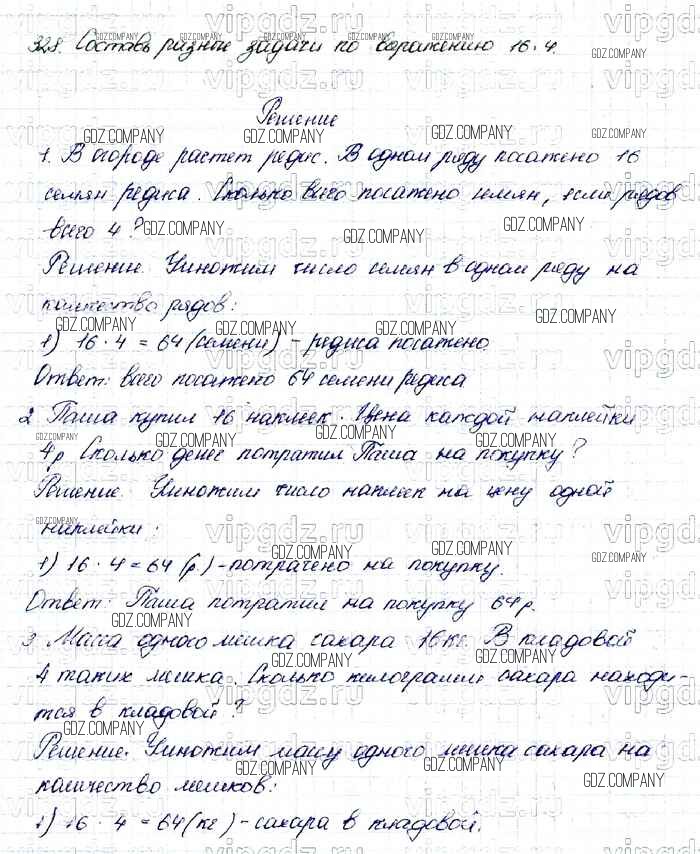 328. Составь разные задачи по выражению 16·4.
Решение
1. В огороде растет редис. В одном ряду посажено 16
семян редиса. Сколько всего посажено семян, если рядов
всего 4?
Решение. Умножим число семян в одном ряду на
количество рядов:
1) 16·4 = 64 (семени) – редиса посажено.
Ответ: всего посажено 64 семени редиса
2 Паша купил 16 наклеек. Цена каждой наклейки
4р. Сколько денег потратил Паша на покупку?
Решение. Умножим число наклеек на цену одной
наклейки:
1) 16·4 = 64 (р.) – потрачено на покупку.
Ответ: Паша потратил на покупку 64р.
3 Масса одного мешка сахара 16 кг. В кладовой
4 таких мешка. Сколько килограмм сахара находи-
тся в кладовой?
Решение. Умножим массу одного мешка сахара на
количество мешков:
1) 16·4 = 64 (кг) – сахара в кладовой.